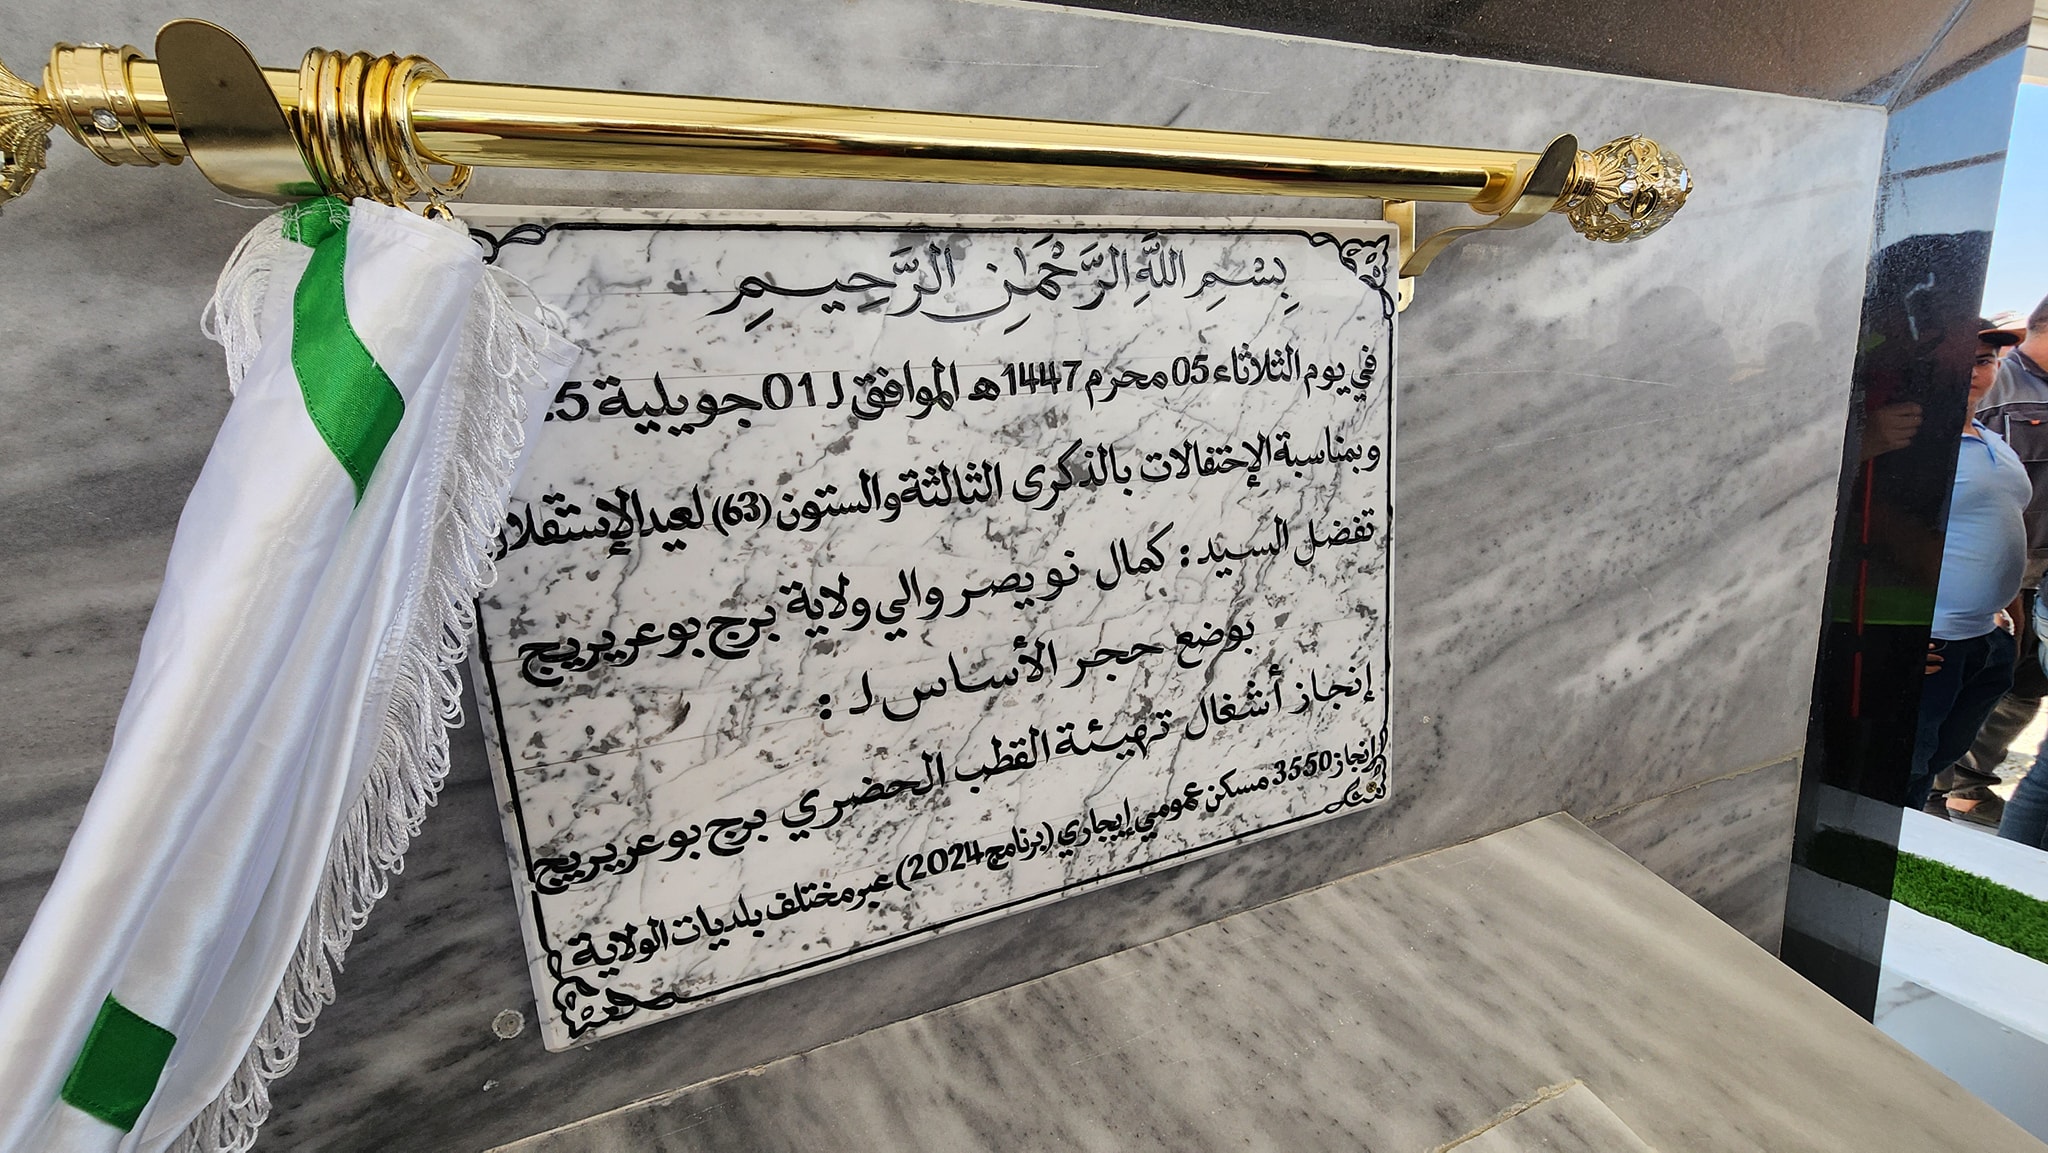 بِسْمِ اللَّهِ الرَّحْمَنِ الرَّحِيمِ
في يوم الثلاثاء 05 محرم 1447 هـ الموافق لـ 01 جويلية
وبمناسبة الإحتفالات بالذكرى الثالثة والستون (63) لعيد
تفضل السيد : كمال نويصر والي ولاية برج بوعريريج
بوضع حجر الأساس لـ :
إنجاز أشغال تهيئة القطب الحضري برج بوعريريج
إنجاز 3550 مسكن عمومي إيجاري (برنامج 2024) عبر مختلف بلديات الولاية